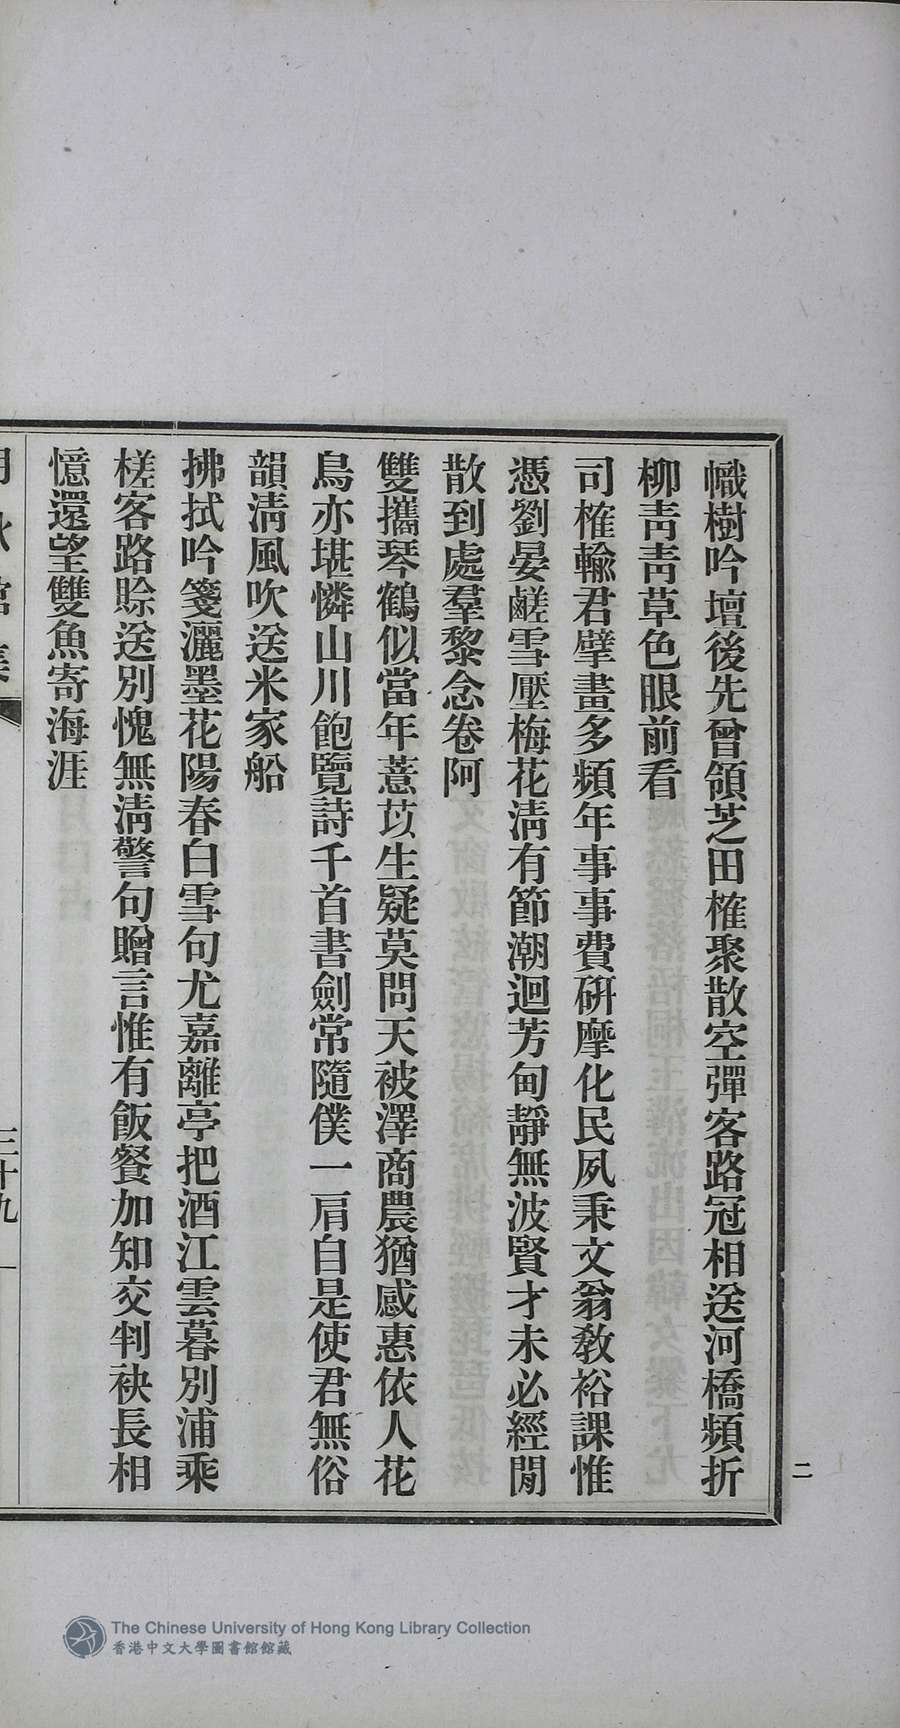 幟樹吟壇後先曾領芝田榷聚散空彈客路冠相送河橋頻折
柳靑靑草色眼前看
司榷輸君擘畫多頻年事事費硏摩化民夙秉文翁敎裕課惟
憑劉晏鹺雪壓梅花淸有節潮迴芳甸靜無波賢才未必經閒
散到處羣黎念卷阿
雙攜琴鶴似當年薏苡生疑莫問天被澤商農猶感惠依人花
鳥亦堪憐山川飽覽詩千首書劍常隨僕一肩自是使君無俗
韻淸風吹送米家船
拂拭吟箋灑墨花陽春白雪句尤嘉離亭把酒江雲暮別浦乘
槎客路賒送別愧無淸警句贈言惟有飯餐加知交判袂長相
憶還望雙魚寄海涯
三十九
二
The Chinese University of Hong Kong Library Collection
香港中文大學圖書館館藏